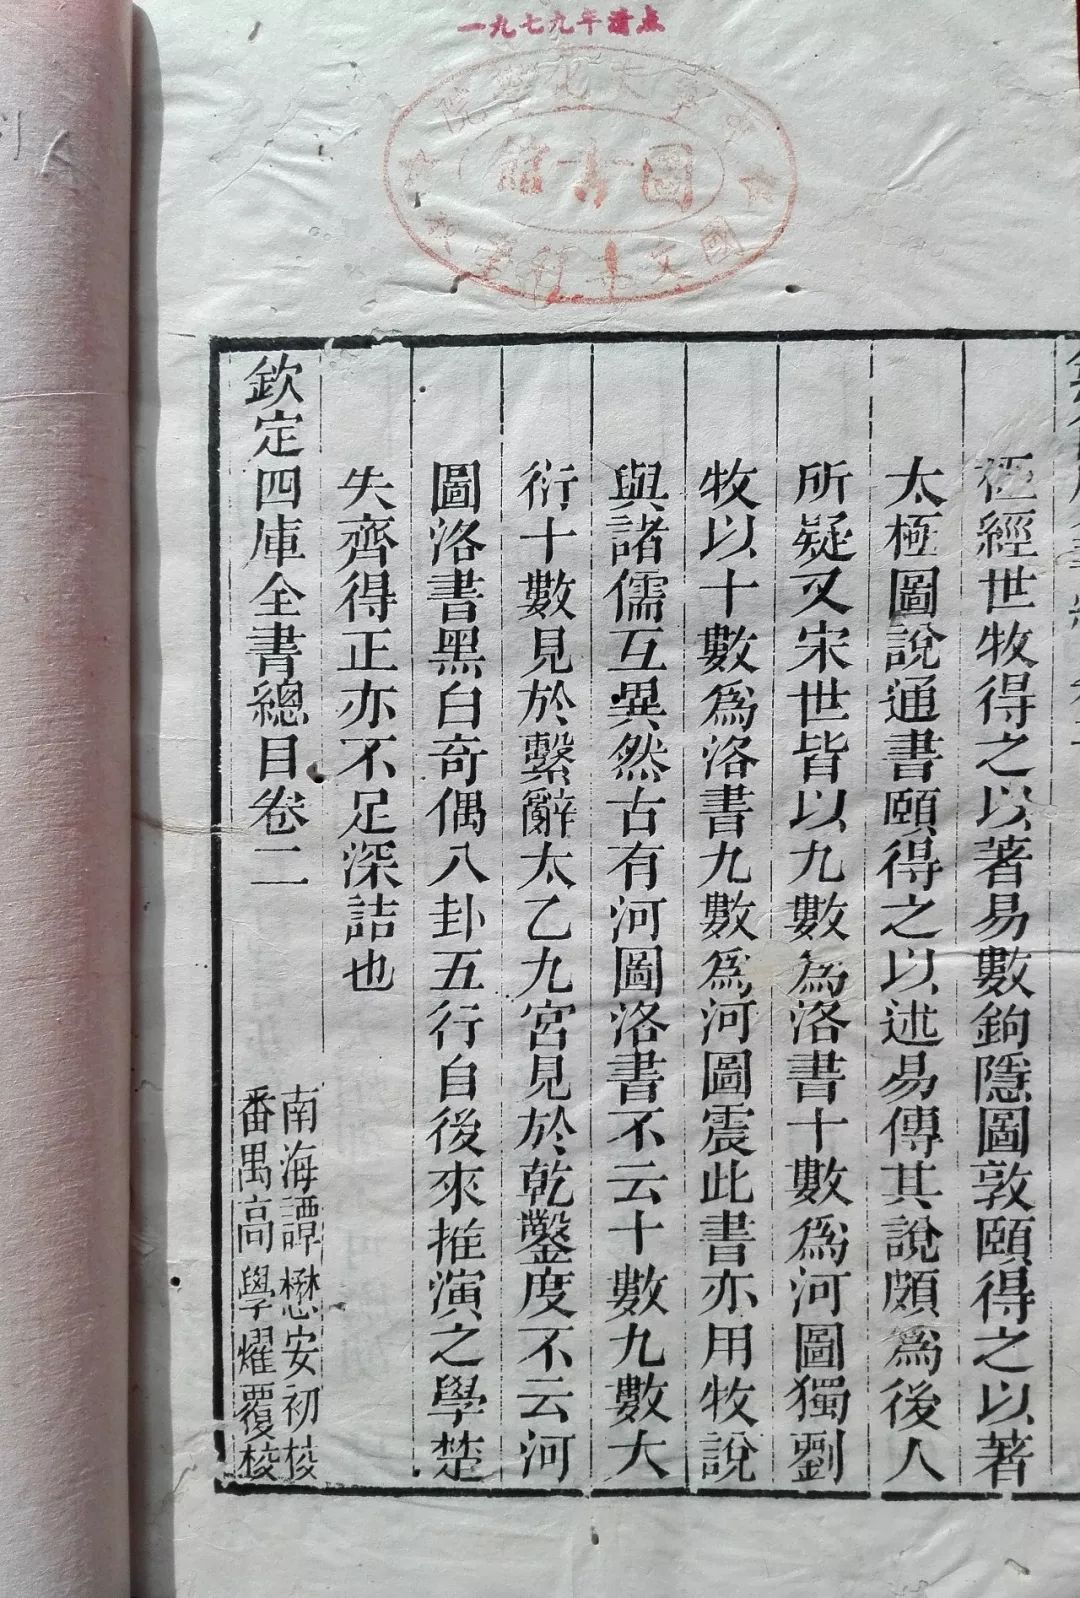 一九七九年清点
圖書館
極經世牧得之以著易數鉤隱圖敦頤得之以著
太極圖說通書頤得之以述易傳其說頗為後人
所疑又宋世皆以九數為洛書十數為河圖獨劉
牧以十數為洛書九數為河圖震此書亦用牧說
與諸儒互異然古有河圖洛書不云十數九數大
衍十數見於繫辭太乙九宮見於乾鑿度不云河
圖洛書黑白奇偶八卦五行自後來推演之學楚
失齊得正亦不足深詰也
欽定四庫全書總目卷二
南海譚懋安初校
番禺高學燿覆校